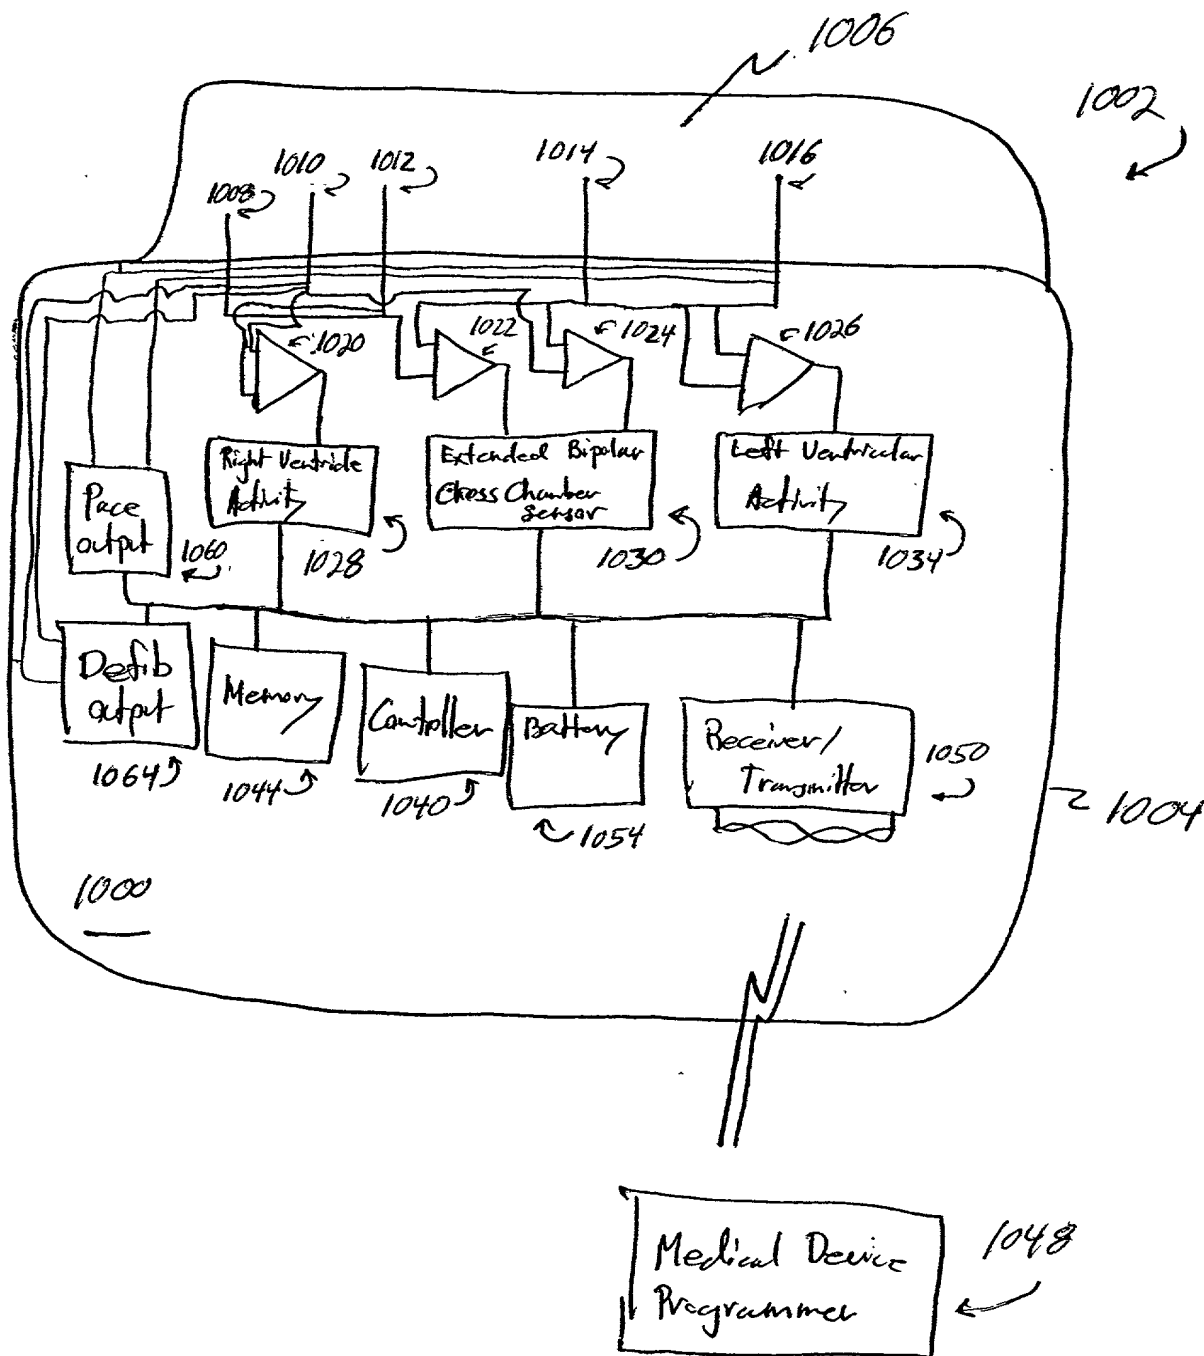 1006
1002
1008
1010
1012
1014
1016
1020
1022
1024
1026
Right Ventricle
Activity
1028
Extended Bipolar
Cross Chamber
Sensor
1030
Left Ventricular
Activity
1034
Pace
output
1060
Defib
output
1064
Memory
1044
Controller
1040
Battery
1054
Receiver/
Transmitter
1050
1004
1000
Medical Device
Programmer
1048